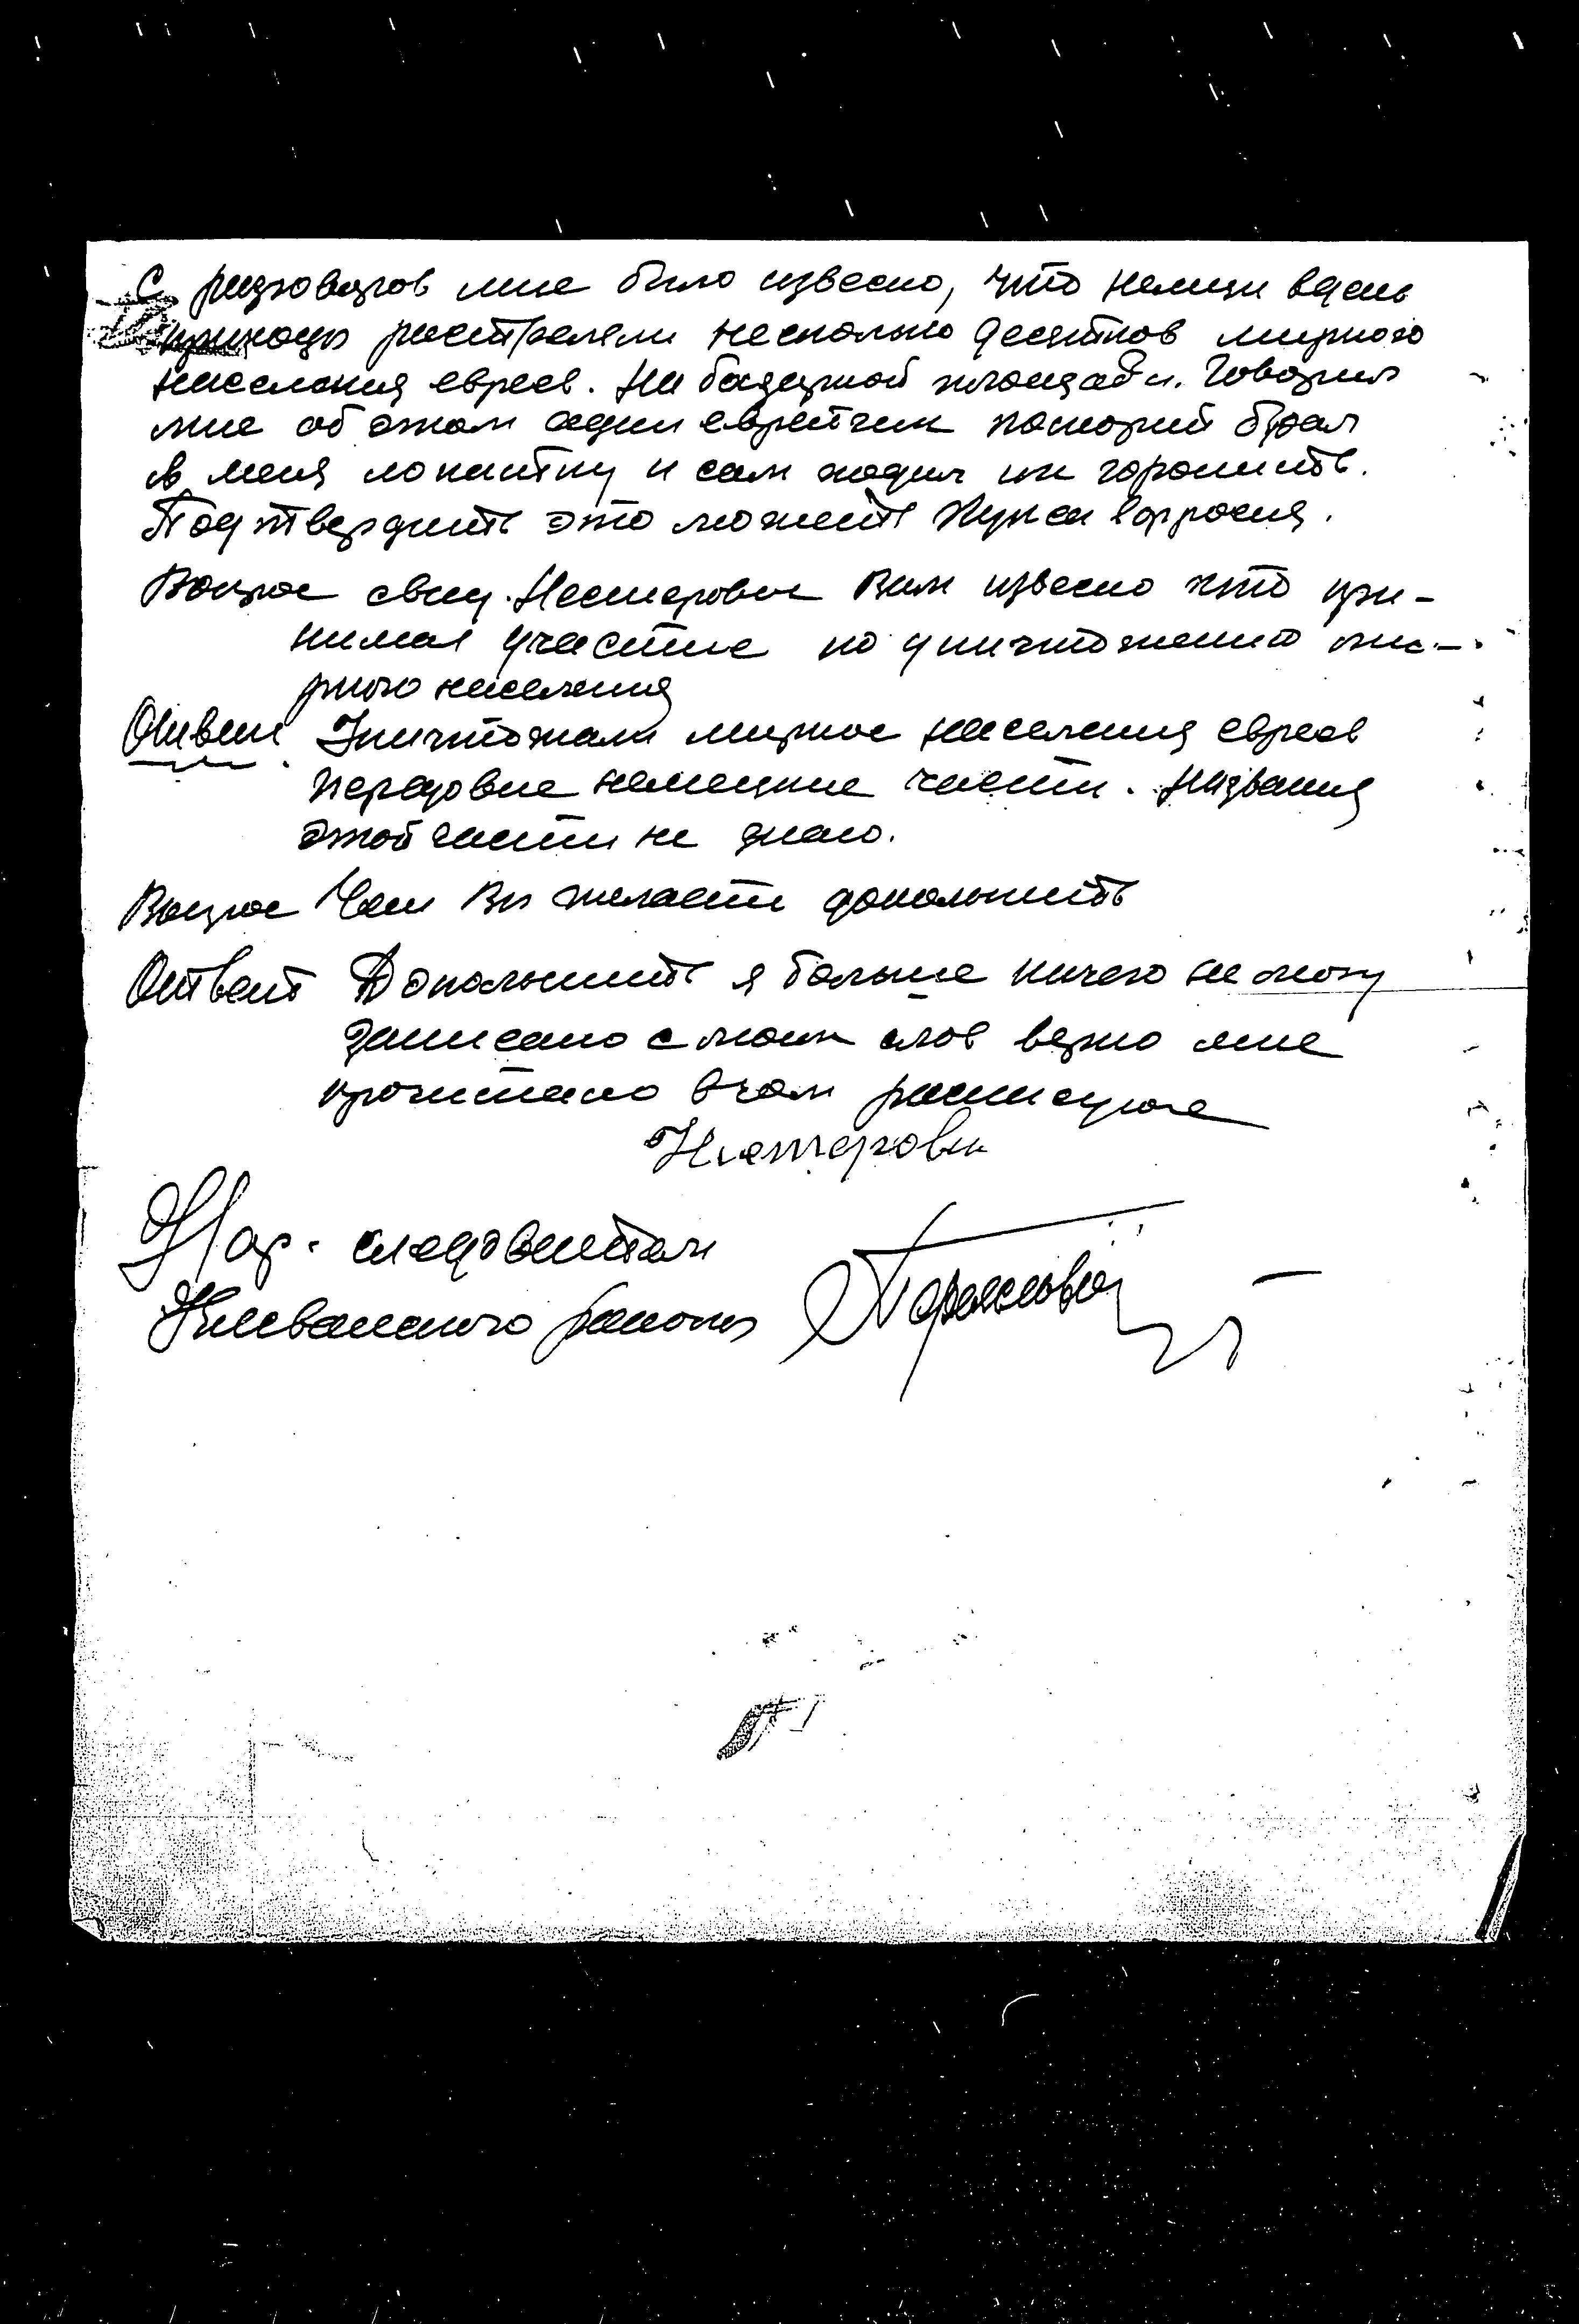 С разговоров мне было извесно, что немцы вдень
прихода расстреляли несколько десятков мирного
населения евреев. На базарной площади. Говорил
мне об этом один еврейчик который брал
в меня лопатку и сам ходил их горонить.
Подтвердить это может
Вопрос свид. Нестеровои Вам извесно кто при-
нимал участие по уничтожению ми-
рного населения
Ответ. Уничтожали мирное населения евреев
передовые немецкие части. Названия
этой части не знаю.
Вопрос Чем Вы желаете дополнить
Ответ Дополнить я больше ничего не могу
записано с моих слов верно мне
прочитано вчом расписуюсь
Нестерова
Нар. следователь
района